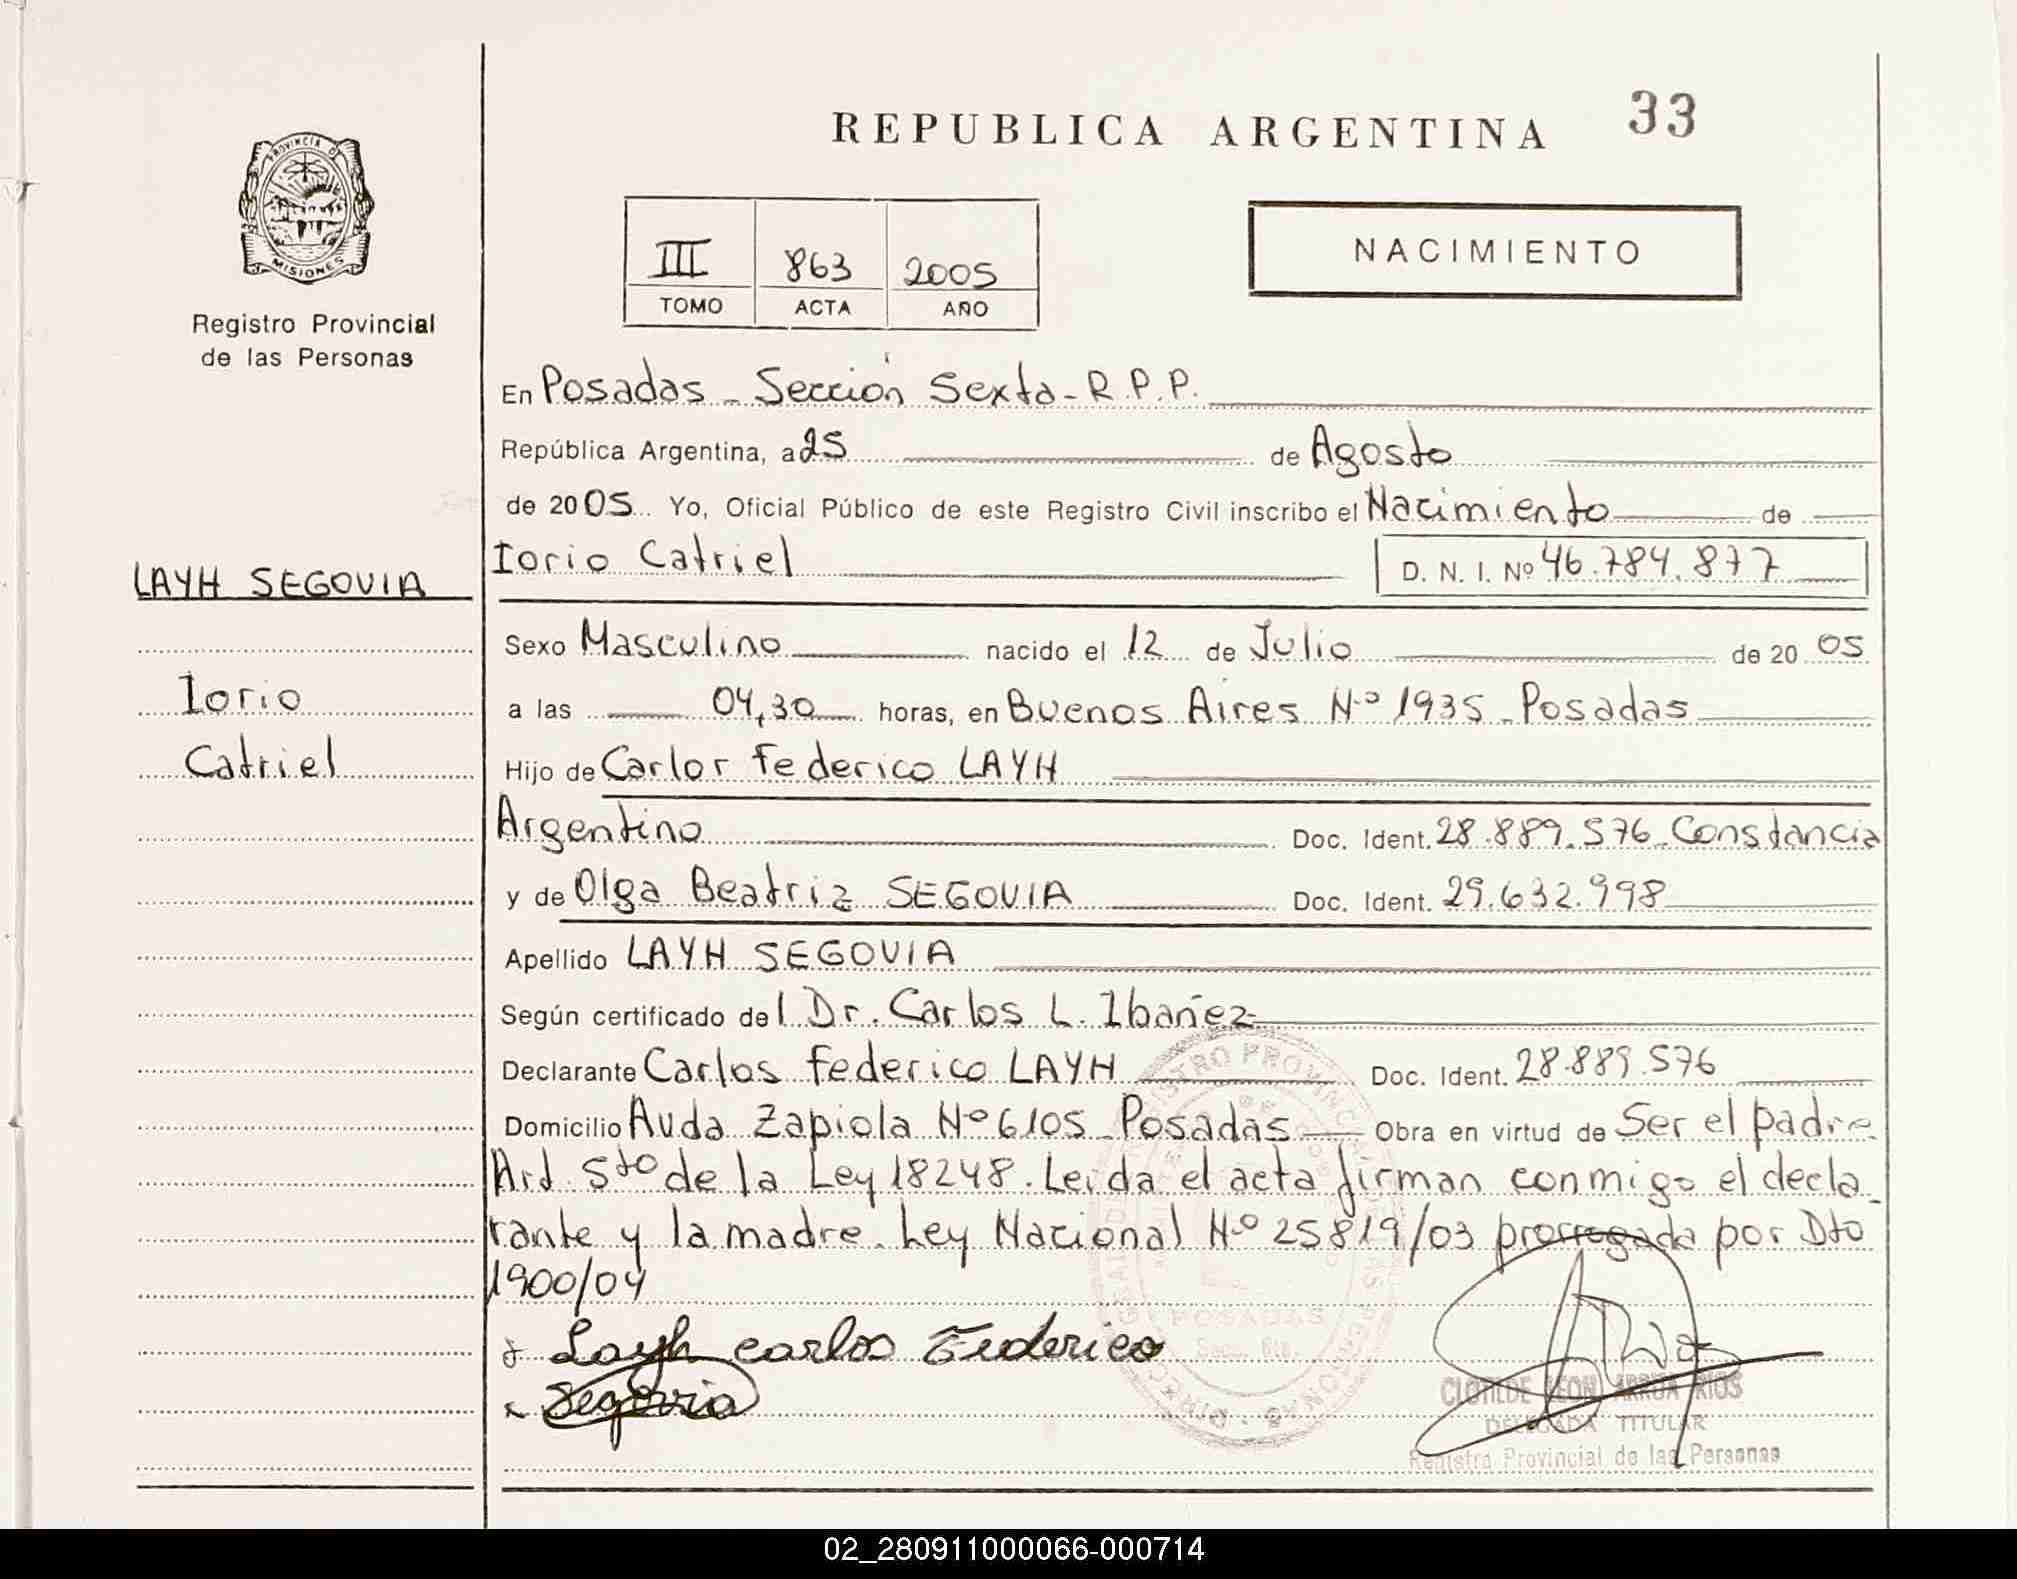 REPUBLICA ARGENTINA 33
PROVINCIA DE
MISIONES
Registro Provincial
de las Personas
III 863 2005
TOMO ACTA AÑO
NACIMIENTO
En Posadas - Sección Sexta - R.P.P.
República Argentina, a 25 de Agosto
de 2005 Yo, Oficial Público de este Registro Civil inscribo el Nacimiento de
Iorio Catriel D. N. I. Nº 46.784.877
LAYH SEGOVIA
Iorio
Catriel
Sexo Masculino nacido el 12 de Julio de 20 05
a las 04,30 horas, en Buenos Aires Nº 1935 - Posadas
Hijo de Carlor Federico LAYH
Argentino Doc. Ident. 28.889.576 - Constancia
y de Olga Beatriz SEGOVIA Doc. Ident. 29.632.998
Apellido LAYH SEGOVIA
Según certificado del Dr. Carlos L. Ibañez
Declarante Carlos Federico LAYH Doc. Ident. 28.889.576
Domicilio Avda Zapiola Nº 6105 - Posadas Obra en virtud de Ser el padre
Art 5to de la Ley 18248. Leida el acta firman conmigo el decla-
rante y la madre. Ley Nacional Nº 25819/03 prorrogada por Dto
1900/04
Layh carlos Federico
Segovia
POSADAS
Secc. 6ta.
CLOTILDE LEON ARRUA RIOS
DELEGADA TITULAR
Registro Provincial de las Personas
02_280911000066-000714